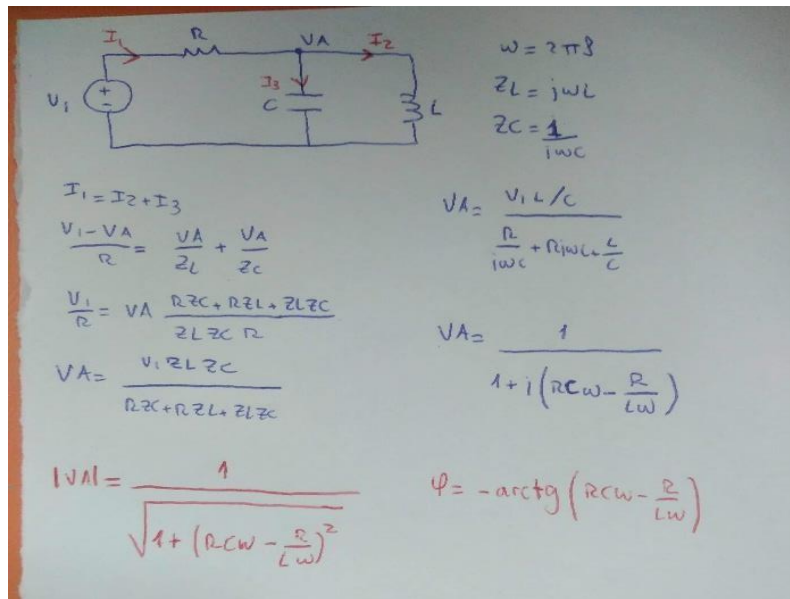 I₁ R VA I₂
I₃
V₁ + − C L
ω = 2πf
ZL = jωL
ZC = 1/jωC
I₁ = I₂ + I₃
(V₁ − VA)/R = VA/ZL + VA/ZC
V₁/R = VA (RZC + RZL + ZLZC)/(ZL ZC R)
VA = (V₁ ZL ZC)/(RZC + RZL + ZLZC)
VA = (V₁ L/C)/(R/jωC + RjωL + L/C)
VA = 1/(1 + j(RCω − R/Lω))
|VA| = 1/√(1 + (RCω − R/Lω)²)
φ = −arctg (RCω − R/Lω)